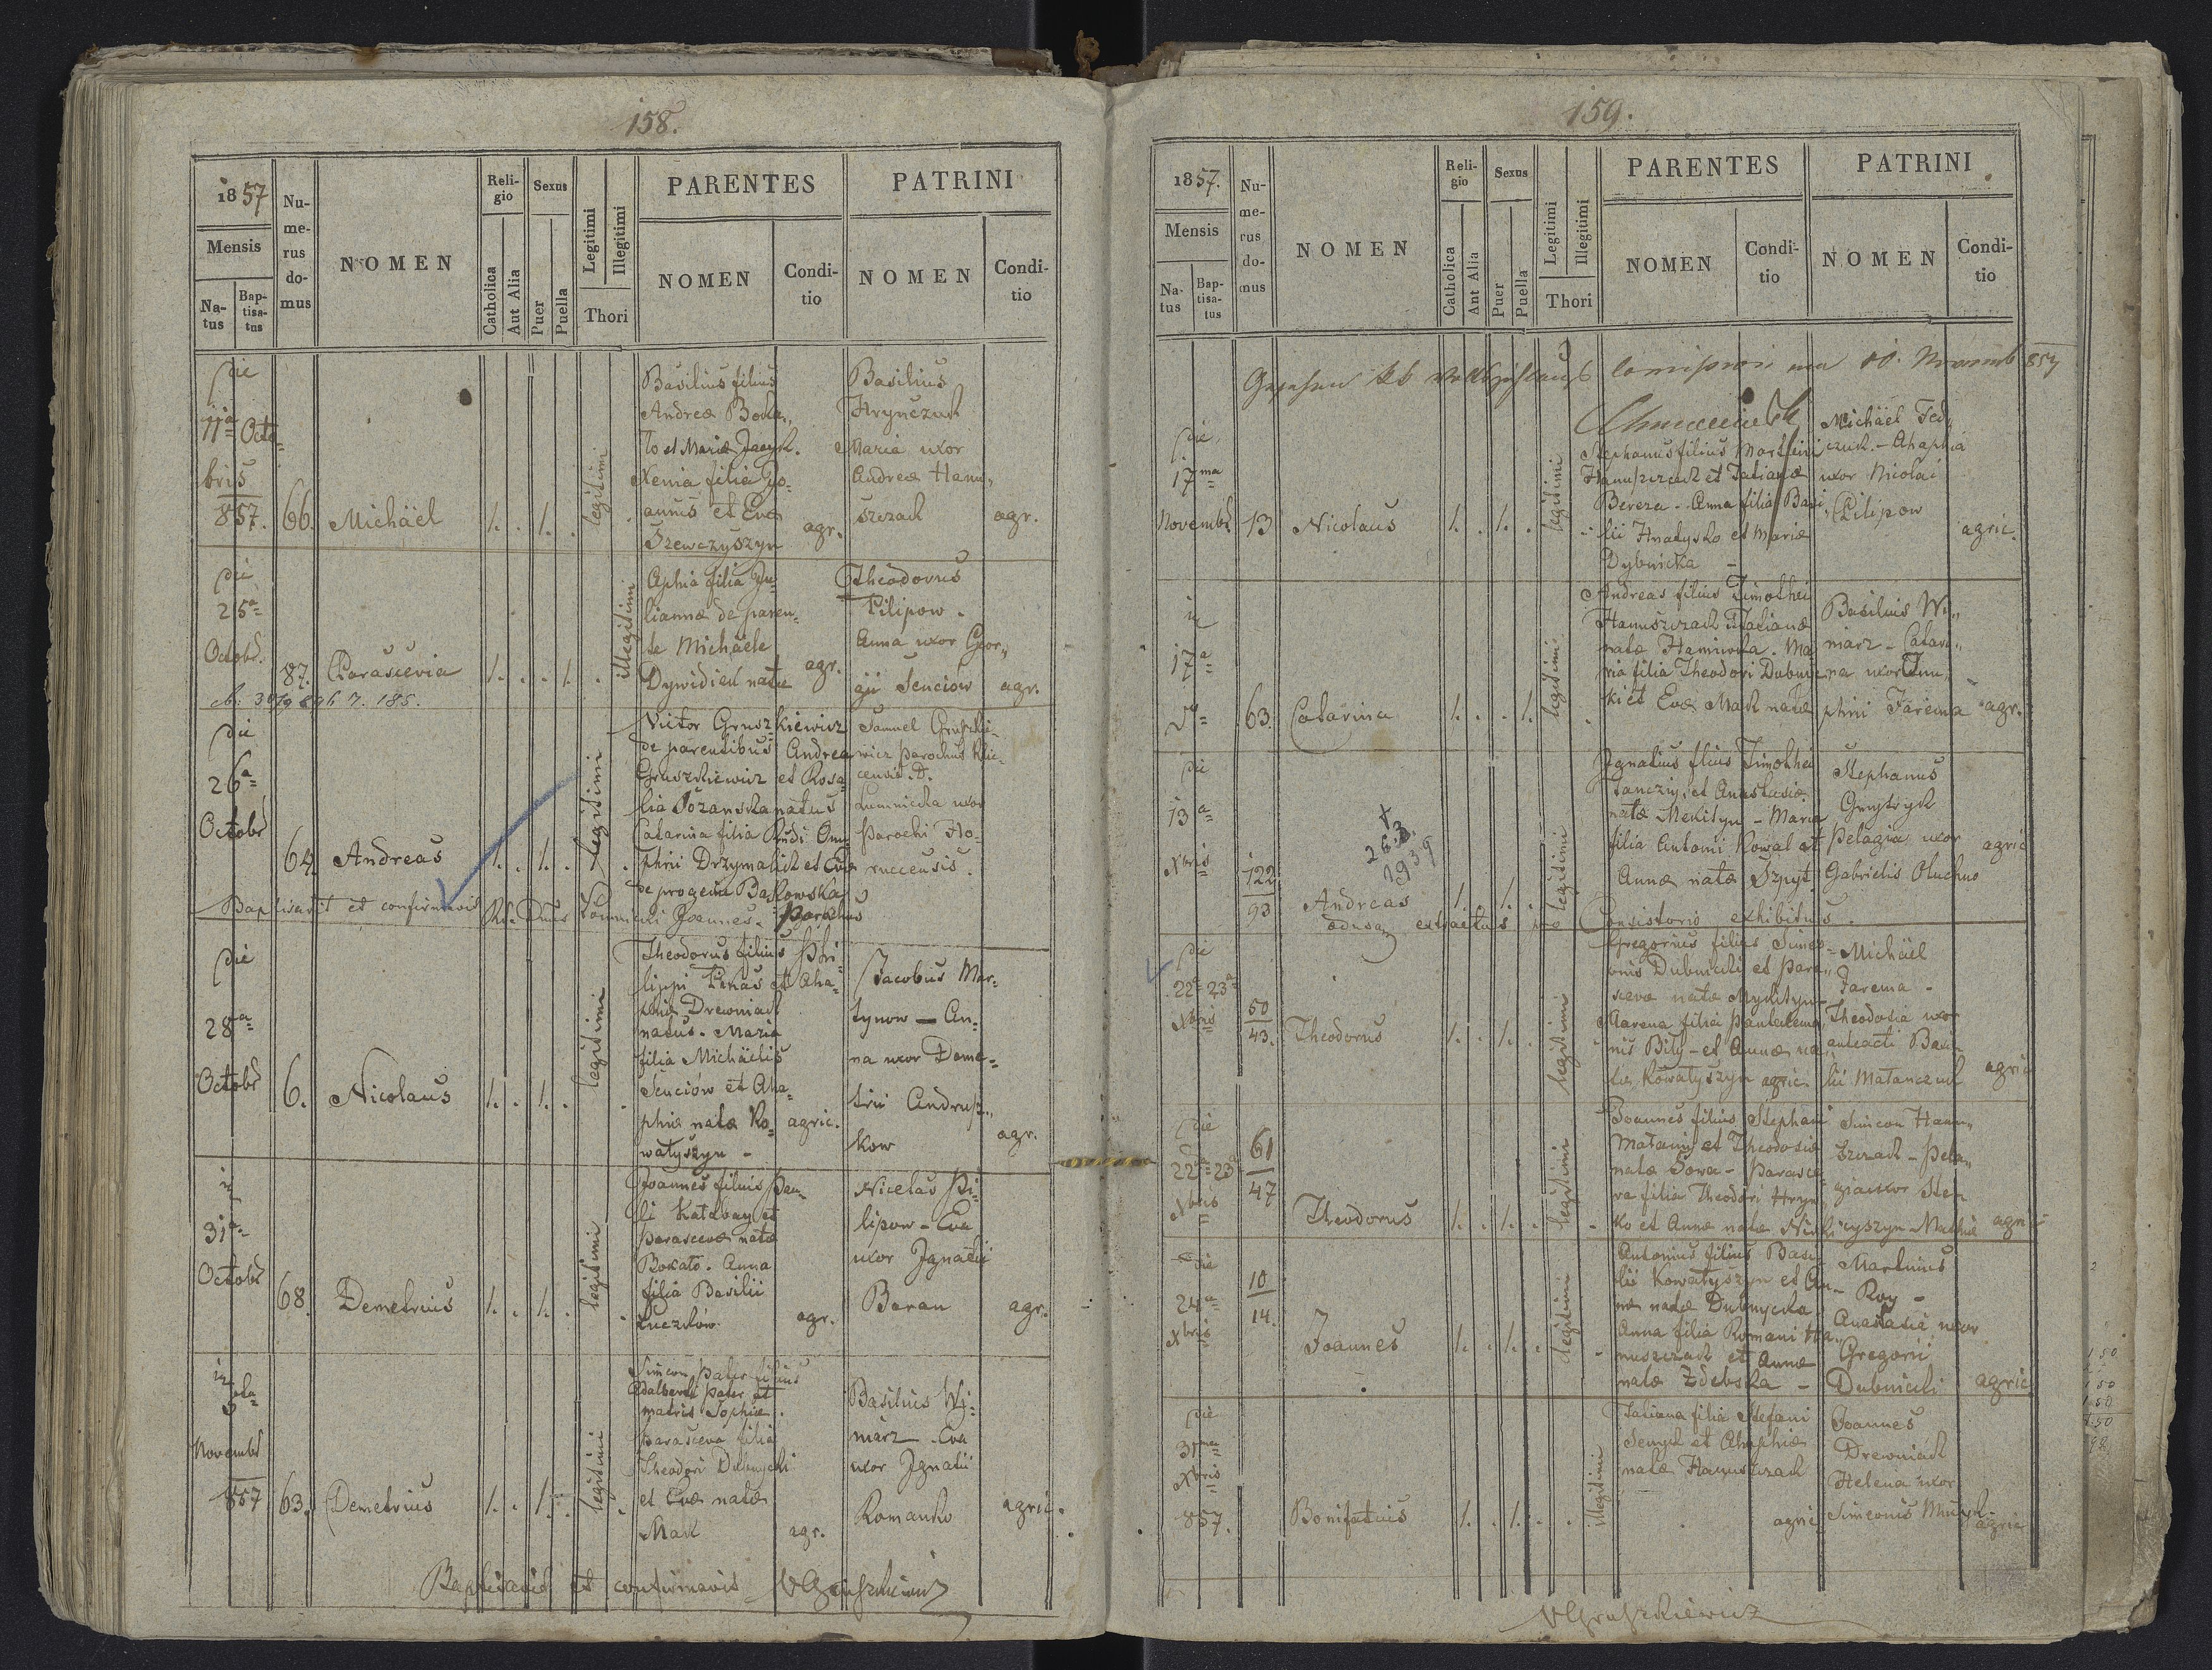 158.
1857
Mensis
Na-
tus
Bap-
tisa-
tus
Nu-
me-
rus
do-
mus
NOMEN
Reli-
gio
Catholica
Aut Alia
Sexus
Puer
Puella
Legitimi
Illegitimi
Thori
PARENTES
NOMEN
Condi-
tio
PATRINI
NOMEN
Condi-
tio
die
11a Octo=
bris
857.
66.
Michäel
1. . 1. .
legitimi
Basilius filius
Andreæ Boka„
to et Mariæ Jacyk.
Xenia filia Jo=
annis et Eva
Szewczyszyn
agr.
Basilius
Hrynczuk
Maria uxor
Andreæ Hanu„
szczak
agr.
die
25a=
Octobr.
87.
Parascevia
1. . . 1.
illegitimi
Aphia filia Ju=
lianna de paren=
te Michäele
Dywidiuk natæ
agr.
Theodorus
Pilipow.
Anna uxor Geor„
gii Senciow
agr.
die
26a=
Octobr
64
Andreas
1. . 1. .
legitimi
Victor Gruszkiewicz
de parentibus Andrea
Gruszkiewicz et Rosa=
lia Łozanska natus
Catarina filia Rudi Onu=
phrii Drzymalik et Eva
de progenia Baslowska
Samuel Gruszkie=
wicz parochus
Luminicka uxor
Parochi Ho=
ruccensis.
Baptisavit et confirmavit Rds. Dnus Łominicki Joannes. Parochus
die
28a=
Octobr
6.
Nicolaus
1. . 1. .
legitimi
Theodorus filius Phi=
lippi Pekas et Aha=
phia Drewniak
natus. Maria
filia Michäelis
Senciów et Aha=
phiæ natæ Ko=
watyszyn -
agric.
Jacobus Mar=
tynow - An=
na uxor Deme=
trii Andrusz„
kow
agr.
in
31a=
Octobr
68.
Demetrius
1. . 1. .
legitimi
Joannes filius Pau=
li Katabay et
Parascevæ natæ
Bokato. Anna
filia Basilii
Łuczków.
agr.
Nicolas Pi=
lipow - Eva
uxor Jgnatii
Baran
agr.
in
5ta
Novembr
857
63.
Demetrius
1. . 1.
legitimi
Simeon Pater filius
Adalberti Pater et
matris Sophiæ.
Parasceva filia
Theodori Dubnycki
et Evæ natæ
Mack
agr.
Basilius Wi=
miarz - Eva
uxor Jgnatii
Romanko
agric.
Baptisavit et confirmavit VGruszkiewicz
159.
1857.
Mensis
Na-
tus
Bap-
tisa-
tus
Nu-
me-
rus
do-
mus
NOMEN
Reli-
gio
Catholica
Aut Alia
Sexus
Puer
Puella
Legitimi
Illegitimi
Thori
PARENTES
NOMEN
Condi-
tio
PATRINI
NOMEN
Condi-
tio
10. Novemb 857
die
17ma
Novembr
13
Nicolaus
1. . 1. .
legitimi
Stephanus filius Martini
Hanuszczak et Tatianæ
Bereza - Anna filia Basi„
lii Hnatysko et Mariæ
Dybnicka -
Michäel Fed„
czuk. - Ahaphia
uxor Nicolai
Pilipow
agric.
in
17a=
63.
Catarina
1. . . 1.
legitimi
Andreas filius Timothei
Hanuszczak Tatianæ
natæ Hamiwka. Ma
ria filia Theodori Dubnic
ki et Evæ Mack natæ
Basilius Wi„
miarz - Catari„
na uxor Onu„
phrii Jarema
agr.
die
13a=
Xbris
122
93
Andreas
1. . 1. .
legitimi
+
26.3.
1939
Jgnatius filius Timothei
Janczy, et Anastasiæ
natæ Mekityn - Maria
filia Antoni Kowal et
Annæ natæ Szpyt
Stephanus
Gmytryk
Pelagia uxor
Gabrielis Oluchno
agric
extractus pro Consistorio exhibitus.
die
22a 23a
Xbris
50
43.
Theodorus
1. . 1. .
legitimi
Gregorius filius Sime=
onis Dubnicki et Para„
scevæ natæ Mykityn -
Marena filia Pantalemo
nis Bily - et Annæ na„
tæ Kowatyszyn agric
Michäel
Jarema -
Theodosia uxor
anteacti Basi=
lii Matanczuk
agric
die
22a 23a
Xbris
61
47
Theodorus
1. . 1. .
legitimi
Joannes filius Stephani
Matanij et Theodosiæ
natæ Sowa - Parasce
va filia Theodori Hryn
ko et Annæ natæ
Simeon Hanu„
szczak - Pela„
gia uxor
agric
die
24a=
Xbris
10
14.
Joannes
1. . 1. .
legitimi
Antonius filius Basi
lii Kowatyszyn et An
næ natæ Dubnycka
Anna filia Romani Ha„
nuszczak et Annæ
natæ Zdebska -
Martinus
Roy -
Anastasia uxor
Gregorii
Dubnicki
agric
die
31ma
Xbris
857.
Bonifatius
1. . 1. .
illegitimi
Tatiana filia Stefani
Senyk et Ahaphiæ
natæ Hanuszczak
agric
Joannes
Drewniak
Helena uxor
Simeonis
agric
VGruszkiewicz